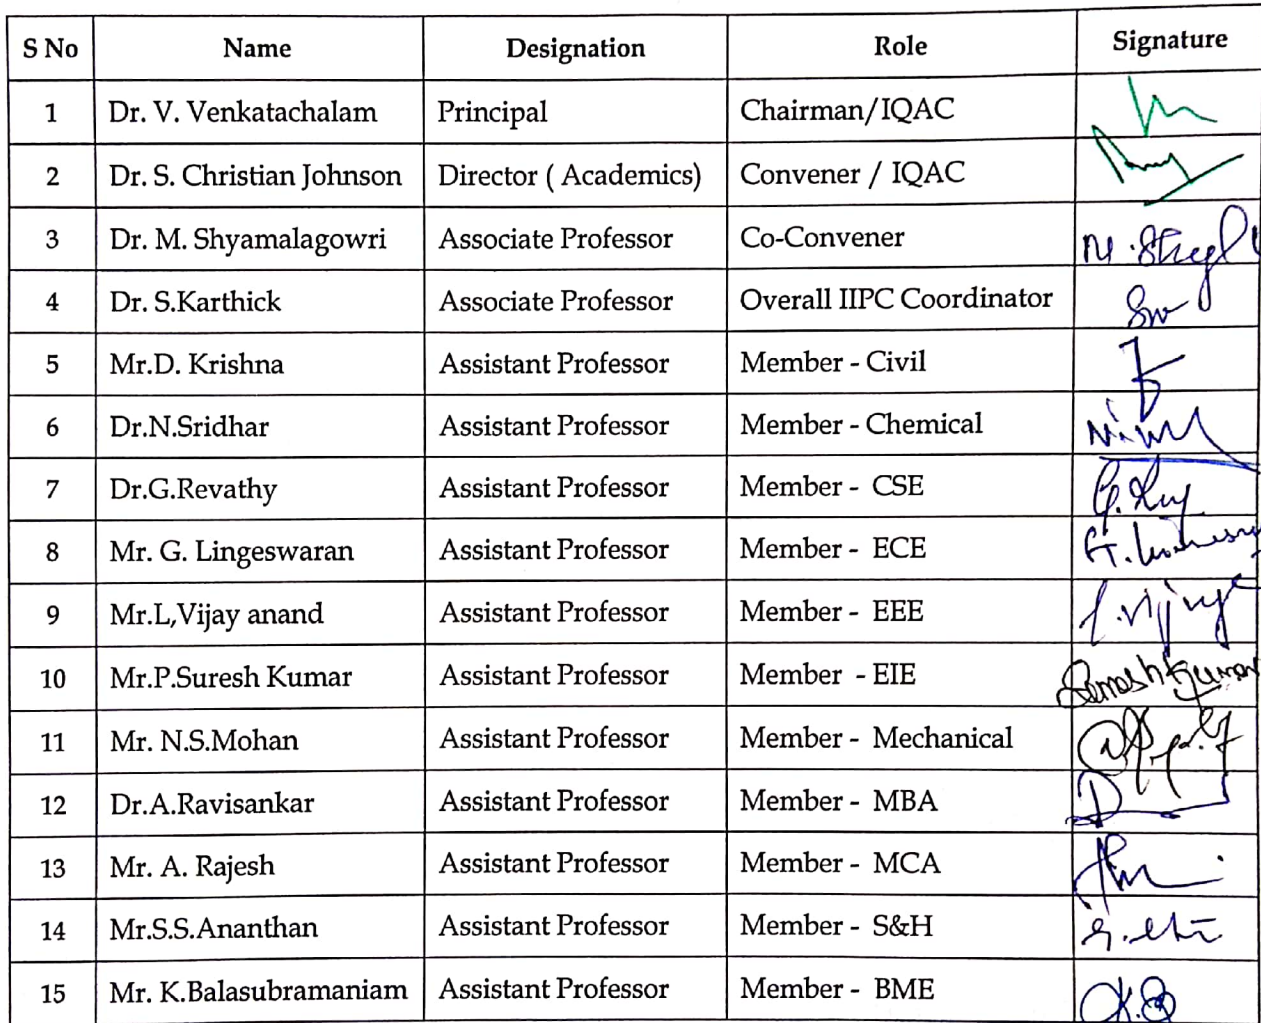 S No Name Designation Role Signature
1 Dr. V. Venkatachalam Principal Chairman/IQAC
2 Dr. S. Christian Johnson Director ( Academics) Convener / IQAC
3 Dr. M. Shyamalagowri Associate Professor Co-Convener
4 Dr. S.Karthick Associate Professor Overall IIPC Coordinator
5 Mr.D. Krishna Assistant Professor Member - Civil
6 Dr.N.Sridhar Assistant Professor Member - Chemical
7 Dr.G.Revathy Assistant Professor Member - CSE
8 Mr. G. Lingeswaran Assistant Professor Member - ECE
9 Mr.L,Vijay anand Assistant Professor Member - EEE
10 Mr.P.Suresh Kumar Assistant Professor Member - EIE
11 Mr. N.S.Mohan Assistant Professor Member - Mechanical
12 Dr.A.Ravisankar Assistant Professor Member - MBA
13 Mr. A. Rajesh Assistant Professor Member - MCA
14 Mr.S.S.Ananthan Assistant Professor Member - S&H
15 Mr. K.Balasubramaniam Assistant Professor Member - BME